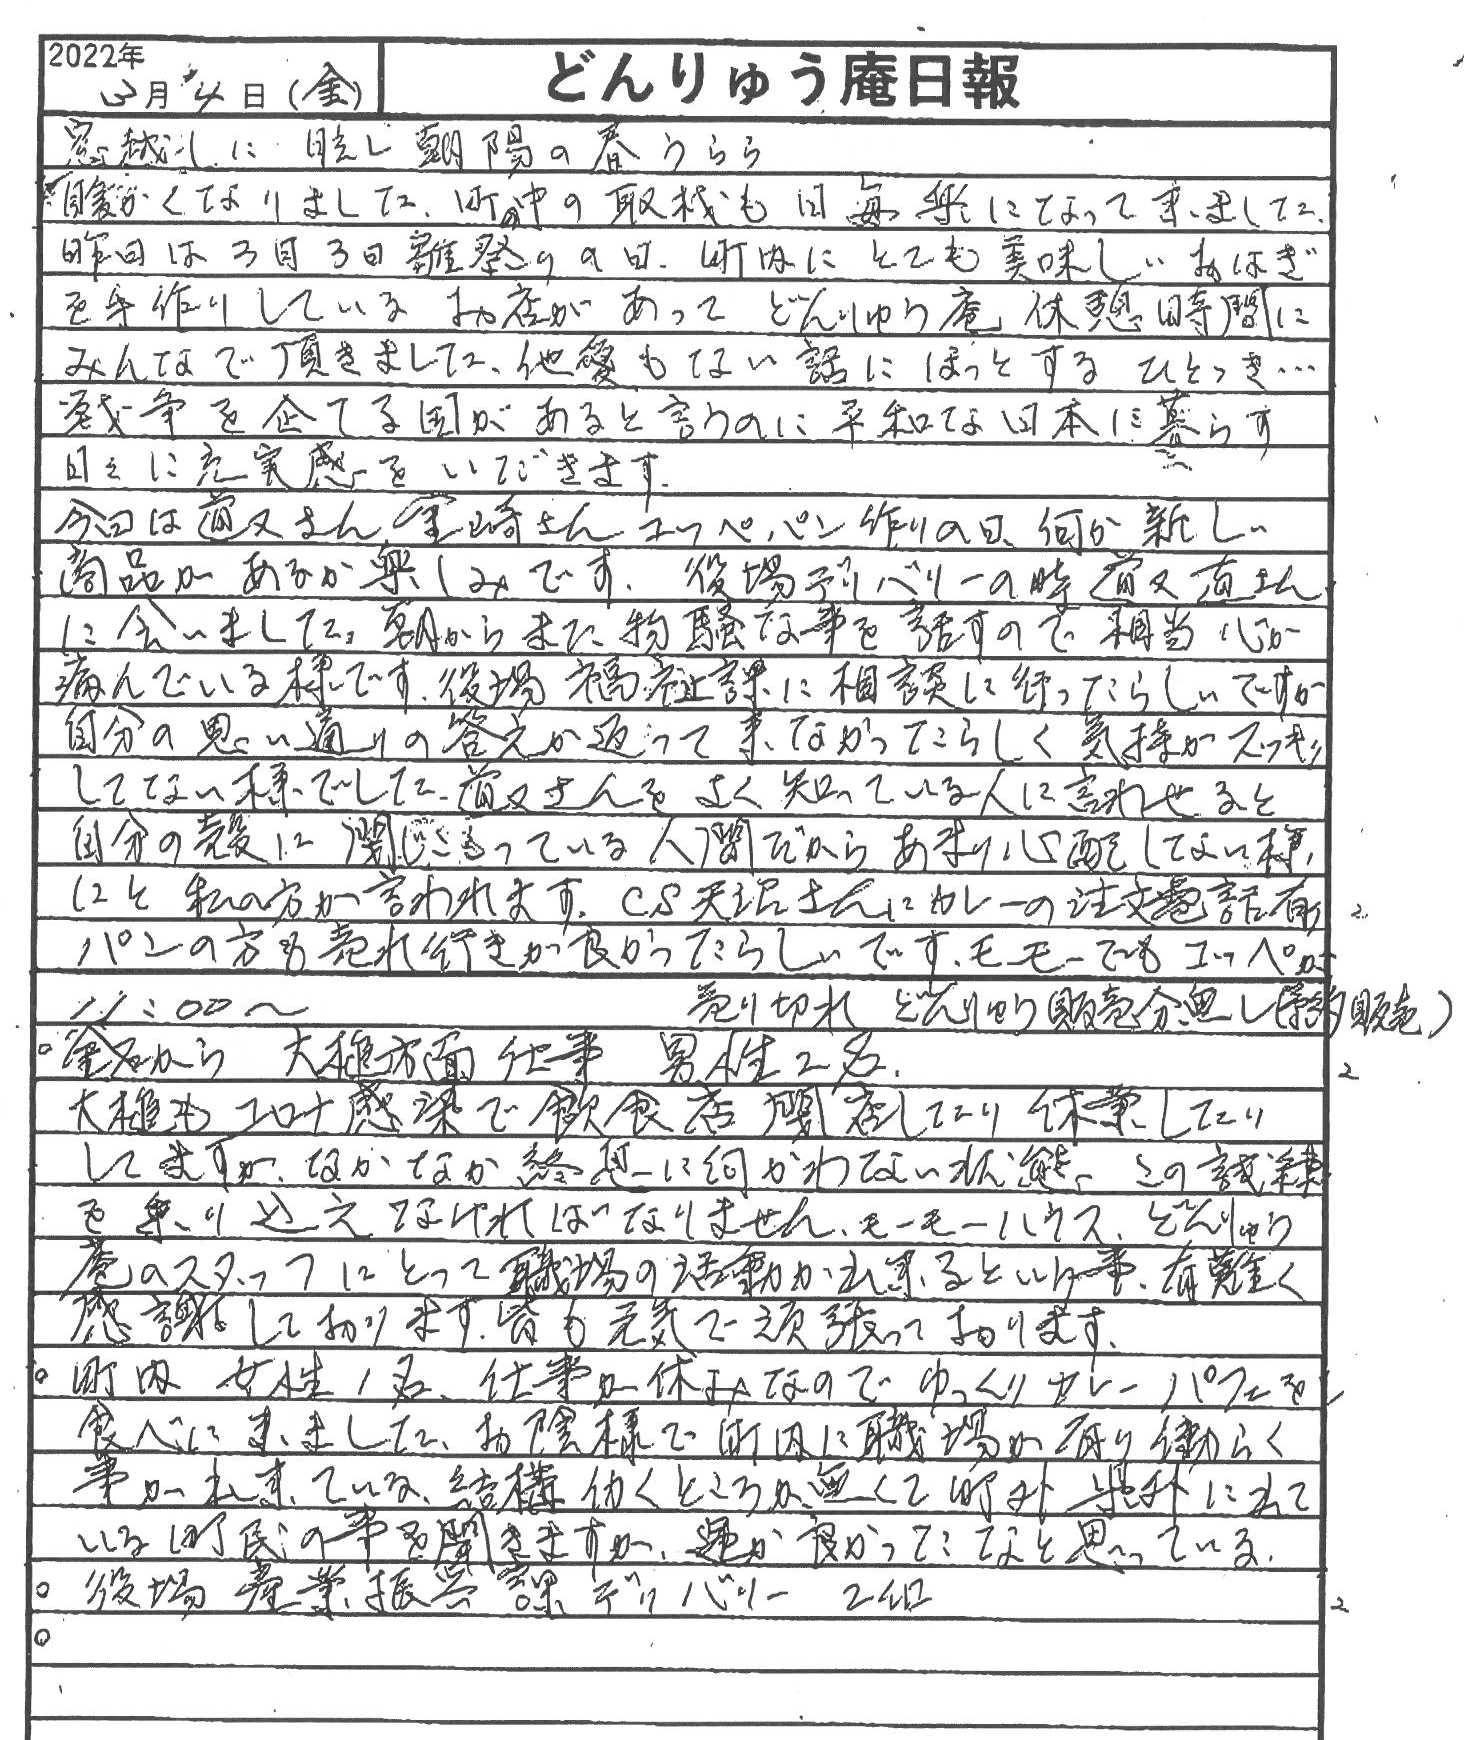 2022年
3月4日(金)
どんりゅう庵日報
窓越しに 眩し 朝陽の春うらら
暖かくなりました、町の中の取材も日毎楽になって来ました、
昨日は3月3日雛祭りの日、町内にとても美味しいおはぎ
を手作りしているお店があって どんりゅう庵 休憩時間に
みんなで頂きました、他愛もない話にほっとするひととき…
戦争を企てる国があると言うのに平和な日本に暮らす
日々に充実感をいだきます。
今日は首又さん 金崎さん コッペパン作りの日、何か新しい
商品があるか楽しみです。役場デリバリーの時 首又 直さん
に会いました。朝からまた物騒な事を話すので相当心が
病んでいる様です。役場福祉課に相談に行ったらしいですが
自分の思い通りの答えが返って来なかったらしく気持がスッキリ
してない様でした、首又さんをよく知っている人に言わせると
自分の殻に閉じこもっている人間だからあまり心配しない様
にと私の方が言われます。CS天沼さんにカレーの注文電話有
パンの方も売れ行きが良かったらしいです、モーモーでもコッペが
11:00〜 売り切れ どんりゅう販売分無し(予約販売)
金石から 大槌方面仕事 男性2名. 2
大槌もコロナ感染で飲食店閉店したり休業したり
してますが、なかなか終息に向かわない状態、この試練
を乗り込えなければなりません、モーモーハウス、どんりゅう
庵のスタッフにとって職場の活動が出来るという事、有難く
感謝しております。皆も元気で頑張っております。
町内 女性1名、仕事が休みなのでゆっくりカレー パフェを
食べに来ました、お陰様で町内に職場が有り働らく
事が出来ている、結構働くところが無くて町外 県外に出て
いる町民の事を聞きますが、運が良かったなと思っている。
役場 産業振興課 デリバリー 2組 2